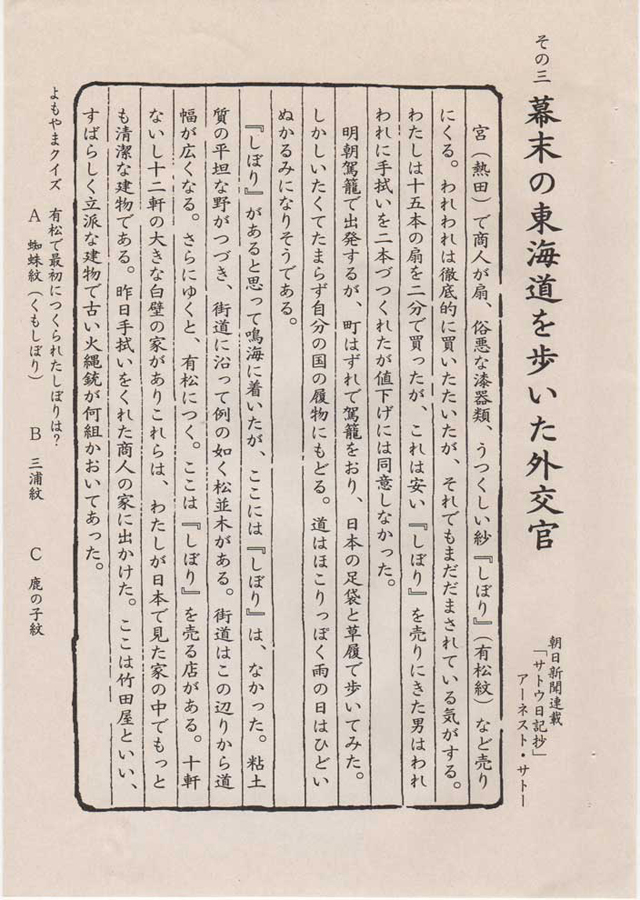 その三 幕末の東海道を歩いた外交官
朝日新聞連載
「サトウ日記抄」
アーネスト・サトー
宮（熱田）で商人が扇、俗悪な漆器類、うつくしい紗『しぼり』（有松紋）など売り
にくる。われわれは徹底的に買いたたいたが、それでもまだだまされている気がする。
わたしは十五本の扇を二分で買ったが、これは安い『しぼり』を売りにきた男はわれ
われに手拭いを二本づつくれたが値下げには同意しなかった。
明朝駕籠で出発するが、町はずれで駕籠をおり、日本の足袋と草履で歩いてみた。
しかしいたくてたまらず自分の国の履物にもどる。道はほこりっぽく雨の日はひどい
ぬかるみになりそうである。
『しぼり』があると思って鳴海に着いたが、ここには『しぼり』は、なかった。粘土
質の平坦な野がつづき、街道に沿って例の如く松並木がある。街道はこの辺りから道
幅が広くなる。さらにゆくと、有松につく。ここは『しぼり』を売る店がある。十軒
ないし十二軒の大きな白壁の家がありこれらは、わたしが日本で見た家の中でもっと
も清潔な建物である。昨日手拭いをくれた商人の家に出かけた。ここは竹田屋といい、
すばらしく立派な建物で古い火縄銃が何組かおいてあった。
よもやまクイズ 有松で最初につくられたしぼりは？
A 蜘蛛紋（くもしぼり） B 三浦紋 C 鹿の子紋